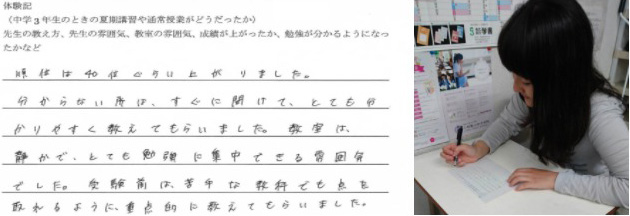 体験記
（中学３年生のときの夏期講習や通常授業がどうだったか）
先生の教え方、先生の雰囲気、教室の雰囲気、成績が上がったか、勉強が分かるようになっ
たかなど
順位は40位ぐらい上がりました。
分からない所は、すぐに聞けて、とても分
かりやすく教えてもらいました。教室は、
静かで、とても勉強に集中できる雰囲気
でした。受験前は、苦手な教科でも点を
取れるように、重点的に教えてもらいました。